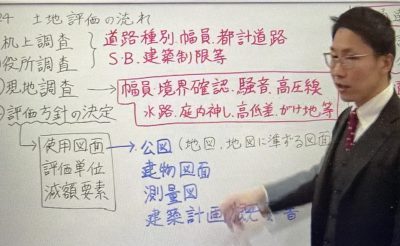 24 土地評価の流れ
机上調査
役所調査
道路種別・幅員・都計道路
S.B.建築制限等
現地調査
幅員・境界確認・騒音・高圧線
水路・庭内神し・高低差・がけ地等
評価方針の決定
使用図面
評価単位
減額要素
公図(地図、地図に準ずる図面
建物図面
測量図
建築計画